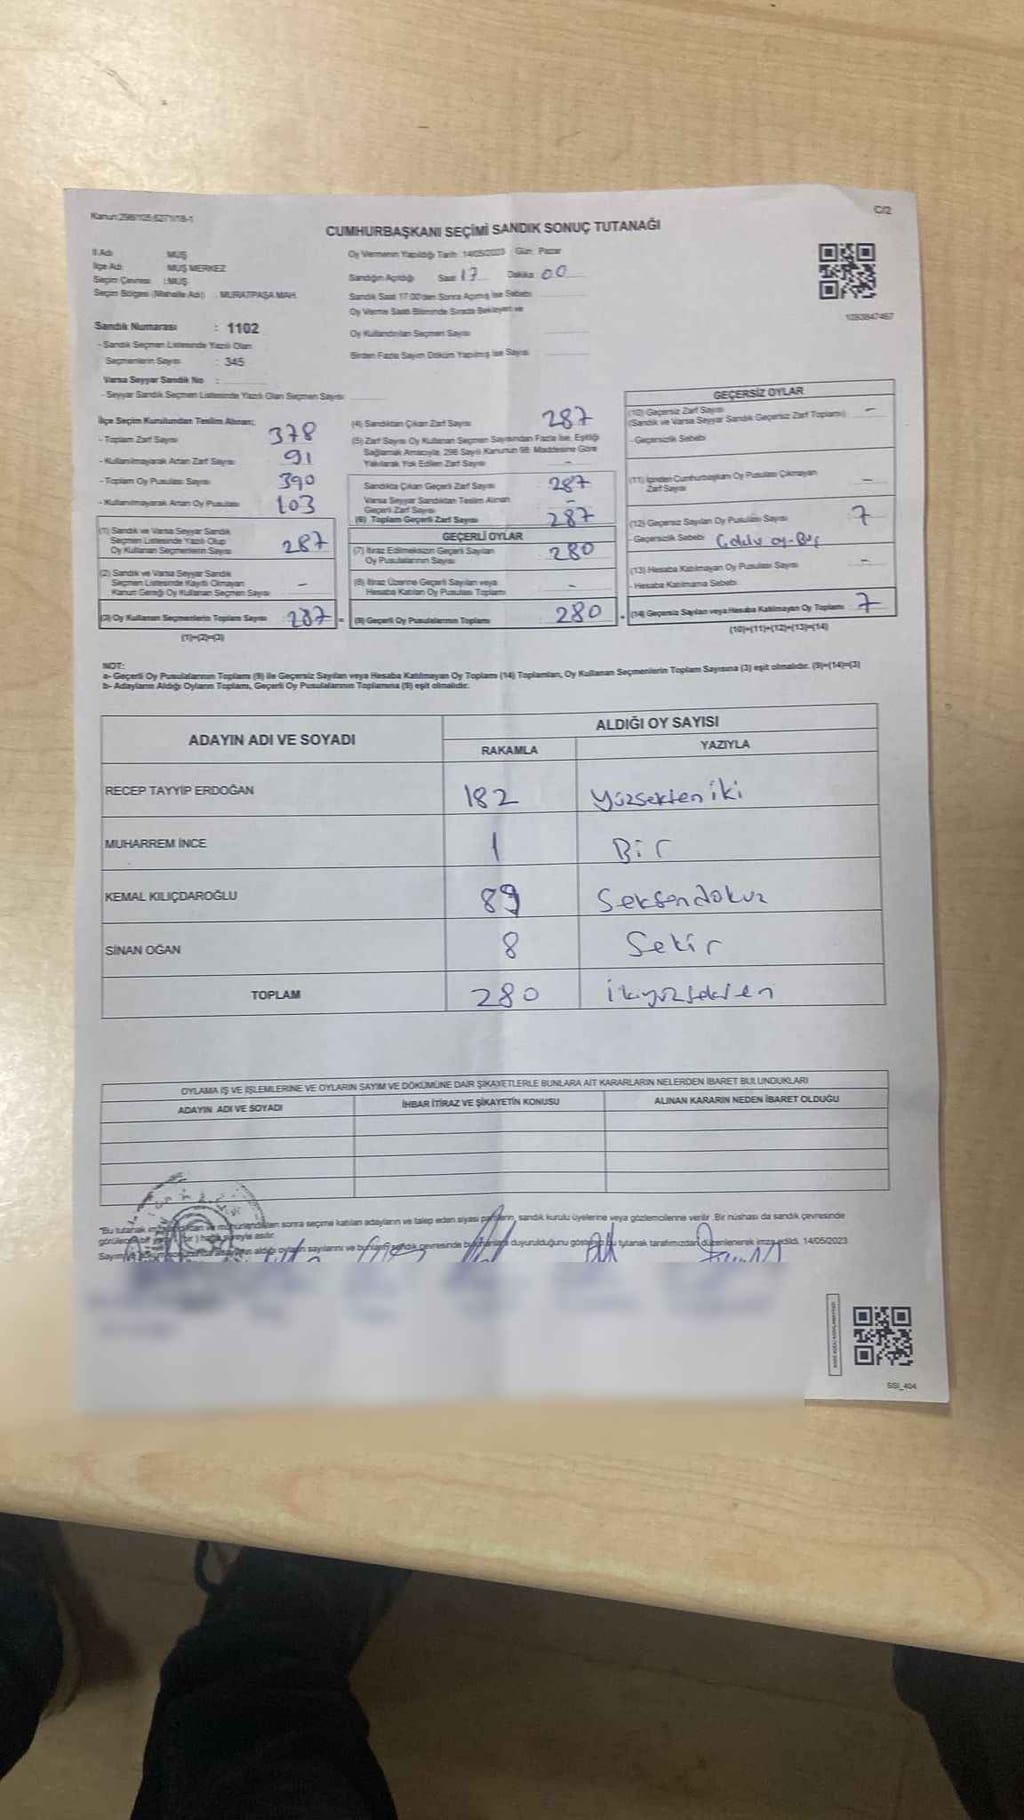 Kanun:298/105;6271/18-1
C/2
CUMHURBAŞKANI SEÇİMİ SANDIK SONUÇ TUTANAĞI
İl Adı : MUŞ
İlçe Adı : MUŞ MERKEZ
Seçim Çevresi : MUŞ
Seçim Bölgesi (Mahalle Adı) : MURATPAŞA MAH.
Oy Vermenin Yapıldığı Tarih: 14/05/2023 Gün: Pazar
Sandığın Açıldığı Saat 17 Dakika 00
Sandık Saat 17.00'den Sonra Açılmış İse Sebebi
Oy Verme Saati Bitiminde Sırada Bekleyen ve
Oy Kullandırılan Seçmen Sayısı
Birden Fazla Sayım Döküm Yapılmış İse Sayısı
Sandık Numarası : 1102
- Sandık Seçmen Listesinde Yazılı Olan
Seçmenlerin Sayısı : 345
Varsa Seyyar Sandık No :
- Seyyar Sandık Seçmen Listesinde Yazılı Olan Seçmen Sayısı
İlçe Seçim Kurulundan Teslim Alınan;
- Toplam Zarf Sayısı 378
- Kullanılmayarak Artan Zarf Sayısı 91
- Toplam Oy Pusulası Sayısı 390
- Kullanılmayarak Artan Oy Pusulası 103
(1) Sandık ve Varsa Seyyar Sandık
Seçmen Listesinde Yazılı Olup
Oy Kullanan Seçmenlerin Sayısı 287
(2) Sandık ve Varsa Seyyar Sandık
Seçmen Listesinde Kayıtlı Olmayan
Kanun Gereği Oy Kullanan Seçmen Sayısı -
(3) Oy Kullanan Seçmenlerin Toplam Sayısı 287
(1)+(2)=(3)
(4) Sandıktan Çıkan Zarf Sayısı 287
(5) Zarf Sayısı Oy Kullanan Seçmen Sayısından Fazla İse, Eşitliği
Sağlamak Amacıyla, 298 Sayılı Kanunun 98. Maddesine Göre
Yakılarak Yok Edilen Zarf Sayısı -
Sandıkta Çıkan Geçerli Zarf Sayısı 287
Varsa Seyyar Sandıktan Teslim Alınan
Geçerli Zarf Sayısı -
(6) Toplam Geçerli Zarf Sayısı 287
GEÇERLİ OYLAR
(7) İtiraz Edilmeksizin Geçerli Sayılan
Oy Pusulalarının Sayısı 280
(8) İtiraz Üzerine Geçerli Sayılan veya
Hesaba Katılan Oy Pusulası Toplamı -
(9) Geçerli Oy Pusulalarının Toplamı 280
GEÇERSİZ OYLAR
(10) Geçersiz Zarf Sayısı
(Sandık ve Varsa Seyyar Sandık Geçersiz Zarf Toplamı) -
- Geçersizlik Sebebi
(11) İçinden Cumhurbaşkanı Oy Pusulası Çıkmayan
Zarf Sayısı -
(12) Geçersiz Sayılan Oy Pusulası Sayısı 7
- Geçersizlik Sebebi
(13) Hesaba Katılmayan Oy Pusulası Sayısı -
- Hesaba Katılmama Sebebi
(14) Geçersiz Sayılan veya Hesaba Katılmayan Oy Toplamı 7
(10)+(11)+(12)+(13)=(14)
NOT:
a- Geçerli Oy Pusulalarının Toplamı (9) ile Geçersiz Sayılan veya Hesaba Katılmayan Oy Toplamı (14) Toplamları, Oy Kullanan Seçmenlerin Toplam Sayısına (3) eşit olmalıdır. (9)+(14)=(3)
b- Adayların Aldığı Oyların Toplamı, Geçerli Oy Pusulalarının Toplamına (9) eşit olmalıdır.
ADAYIN ADI VE SOYADI ALDIĞI OY SAYISI
RAKAMLA YAZIYLA
RECEP TAYYİP ERDOĞAN 182 Yüzsekseniki
MUHARREM İNCE 1 Bir
KEMAL KILIÇDAROĞLU 89 Seksendokuz
SİNAN OĞAN 8 Sekiz
TOPLAM 280 ikiyüzseksen
OYLAMA İŞ VE İŞLEMLERİNE VE OYLARIN SAYIM VE DÖKÜMÜNE DAİR ŞİKAYETLERLE BUNLARA AİT KARARLARIN NELERDEN İBARET BULUNDUKLARI
ADAYIN ADI VE SOYADI İHBAR İTİRAZ VE ŞİKAYETİN KONUSU ALINAN KARARIN NEDEN İBARET OLDUĞU
"Bu tutanak sonra seçime katılan adayların ve talep eden siyasi sandık kurulu üyelerine veya gözlemcilerine verilir. Bir nüshası da sandık çevresinde
asılır.
aldığı oyların sayılarını ve sandık çevresinde duyurulduğunu tutanak tarafımızdan düzenlenerek imza edildi. 14/05/2023
SSI_404